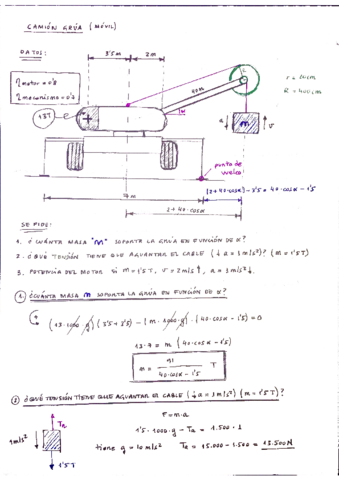 CAMIÓN GRÚA (MÓVIL)
DATOS:
3'5m
2m
η motor = 0'8
η mecanismo = 0'7
13T
40m
r = 20cm
R = 400cm
m
a
v
α
punto de vuelco
7m
(2+40·cosα) - 3'5 = 40·cosα - 1'5
2+40·cosα
SE PIDE:
1. ¿CUÁNTA MASA "m" SOPORTA LA GRÚA EN FUNCIÓN DE α?
2. ¿QUÉ TENSIÓN TIENE QUE AGUANTAR EL CABLE (↓a = 1m/s²)? (m = 1'5T)
3. POTENCIA DEL MOTOR si m = 1'5T, v = 2m/s↑, a = 1m/s²↓.
① ¿CUÁNTA MASA m SOPORTA LA GRÚA EN FUNCIÓN DE α?
(13·1000·g)(3'5+3'5) - (m·1000·g)·(40·cosα - 1'5) = 0
13·7 = m(40·cosα - 1'5)
m = 91 / 40·cosα - 1'5 T
② ¿QUÉ TENSIÓN TIENE QUE AGUANTAR EL CABLE (↓a = 1m/s²) (m = 1'5T)?
F = m·a
1m/s²
1'5·1000·g - Ta = 1.500·1
tiene g = 10m/s² Ta = 15.000 - 1.500 = 13.500N
1'5T